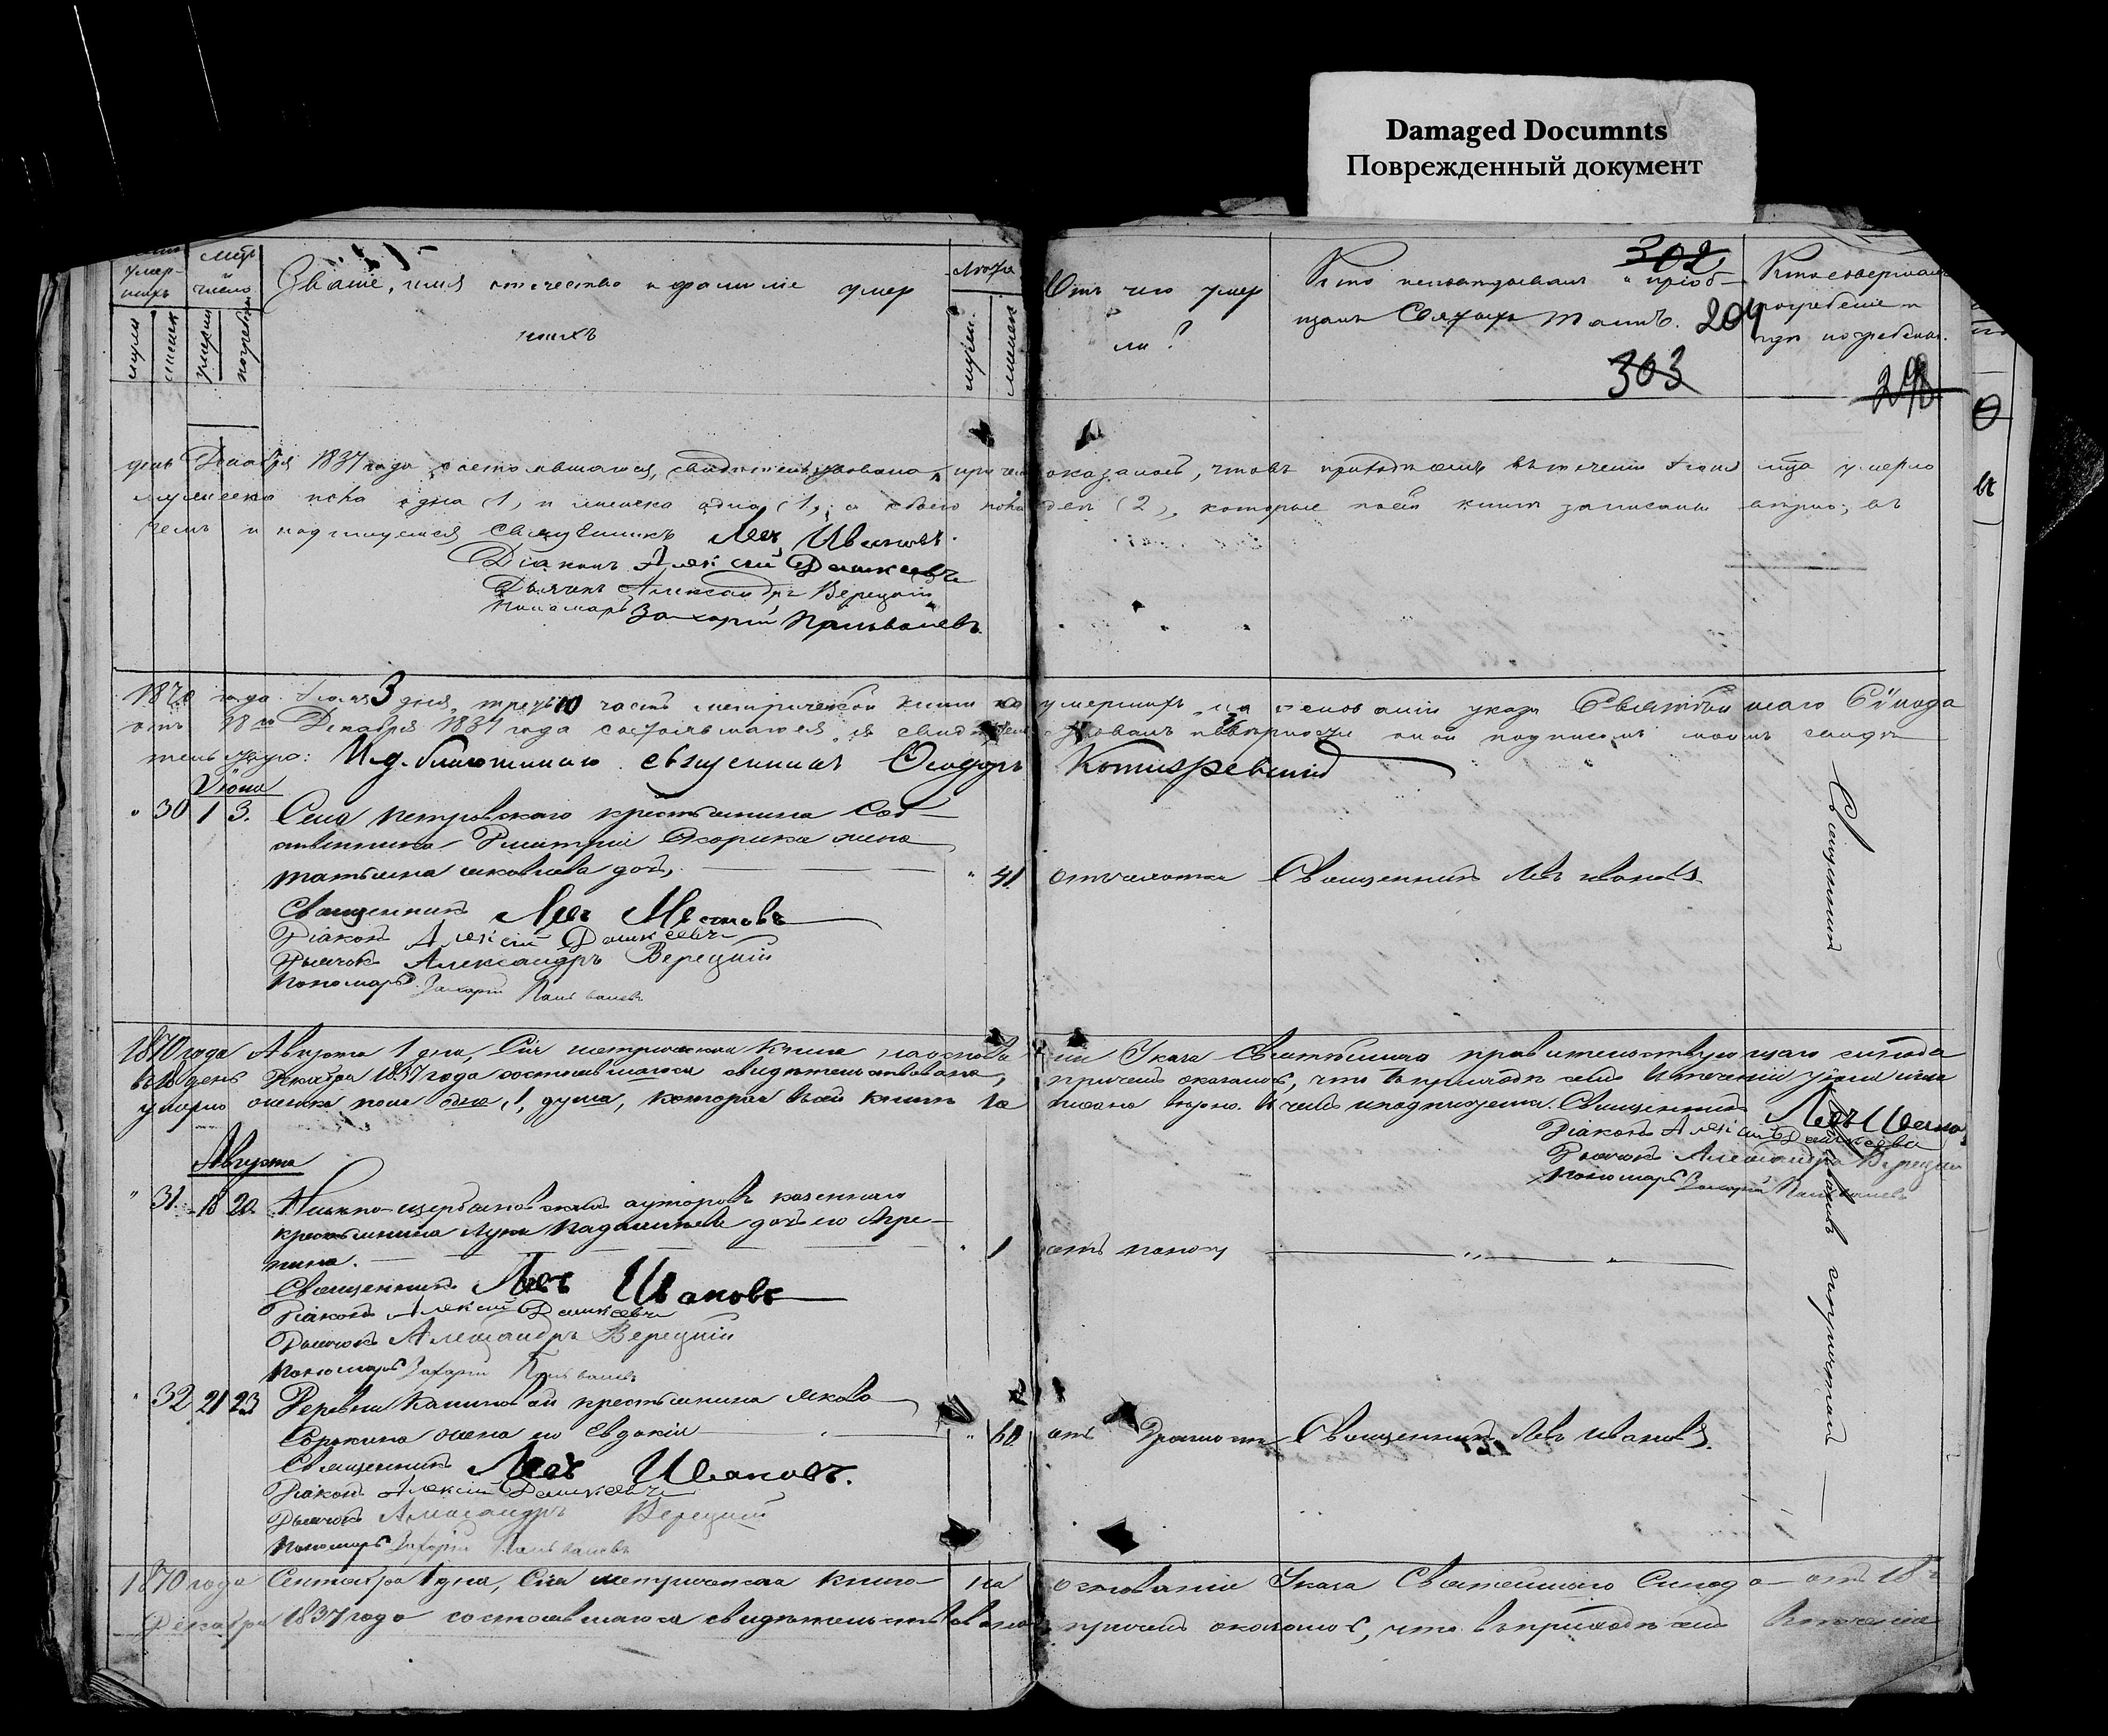 Damaged Documnts
Поврежденный документ
умер-
шихъ
число
Званіе, имя отечество и фамиліе умер
шихъ
Лѣта
Отъ чего умер
ли?
Кто исповѣдывалъ и пріоб-
щалъ Святыхъ Таинъ.
Кто совершалъ
погребеніе и
гдѣ погребены.
302
204
303
298
день Декабря 1837 года состоявшагося, свидѣтельствована, причемъ оказалось, что въ приходѣ семъ въ теченіи Іюня мѣсяца умерло
мужеска пола одна (1, и женска одна (1, а обоего пола двѣ (2), которые въ сей книгѣ записаны вѣрно; въ
чемъ и подписуемся Священникъ Левъ Ивановъ.
Діаконъ Алексій
Дьячокъ Александръ Верецкій
Пономарь Захарій
1870 года 3 дня, третью часть метрической книги объ умершихъ, на основаніи указа Святѣйшаго Сѵнода
отъ 18го Декабря 1837 года состоявшагося, я свидѣтельствовалъ и въ вѣрности оной подписомъ моимъ свидѣ-
тельствую: И.д. благочиннаго священникъ Ѳеодоръ
Іюля
30 1 3. Села Петровского крестьянина Соб-
ственника Дмитрія жена
Татьяна Яковлева дочь,
41 отъ чахотки Священникъ Левъ Ивановъ
Священникъ Левъ Ивановъ
Діаконъ Алексій
Дьячокъ Александръ Верецкій
Пономарь Захарій
1870 года Августа 1 дня, Сія метрическая книга на основаніи Указа Святѣйшаго правительствующаго синода
въ 18 день Декабря 1837 года состоявшагося свидѣтельствована, причемъ оказалось, что въ приходѣ семъ въ теченіи Іюля м-ца
умерло женска пола одна, 1, душа, которая въ сей книгѣ записана вѣрно. Въ чемъ и подписуемся. Священникъ Левъ Ивановъ
Діаконъ Алексій
Дьячокъ Александръ Верецкій
Пономарь Захарій
Августа
31. 18 20. хуторовъ казеннаго
крестьянина Луки дочь его Агре-
пина.
1 отъ поносу
Священникъ Левъ Ивановъ
Діаконъ Алексій
Дьячокъ Александръ Верецкій
Пономарь Захарій
32 21 23 Деревни Калиновой крестьянина Якова
Сорокина жена его Евдокія
60 отъ Священникъ Левъ Ивановъ.
Священникъ Левъ Ивановъ.
Діаконъ Алексій
Дьячокъ Александръ Верецкій
Пономарь Захарій
Священникъ
1870 года Сентября 1 дня, Сія метрическая книга на основаніи Указа Святейшаго Синода отъ 18го
Декабря 1837 года состоявшагося свидѣтельствована причемъ оказалось, что въ приходѣ семъ въ теченіи